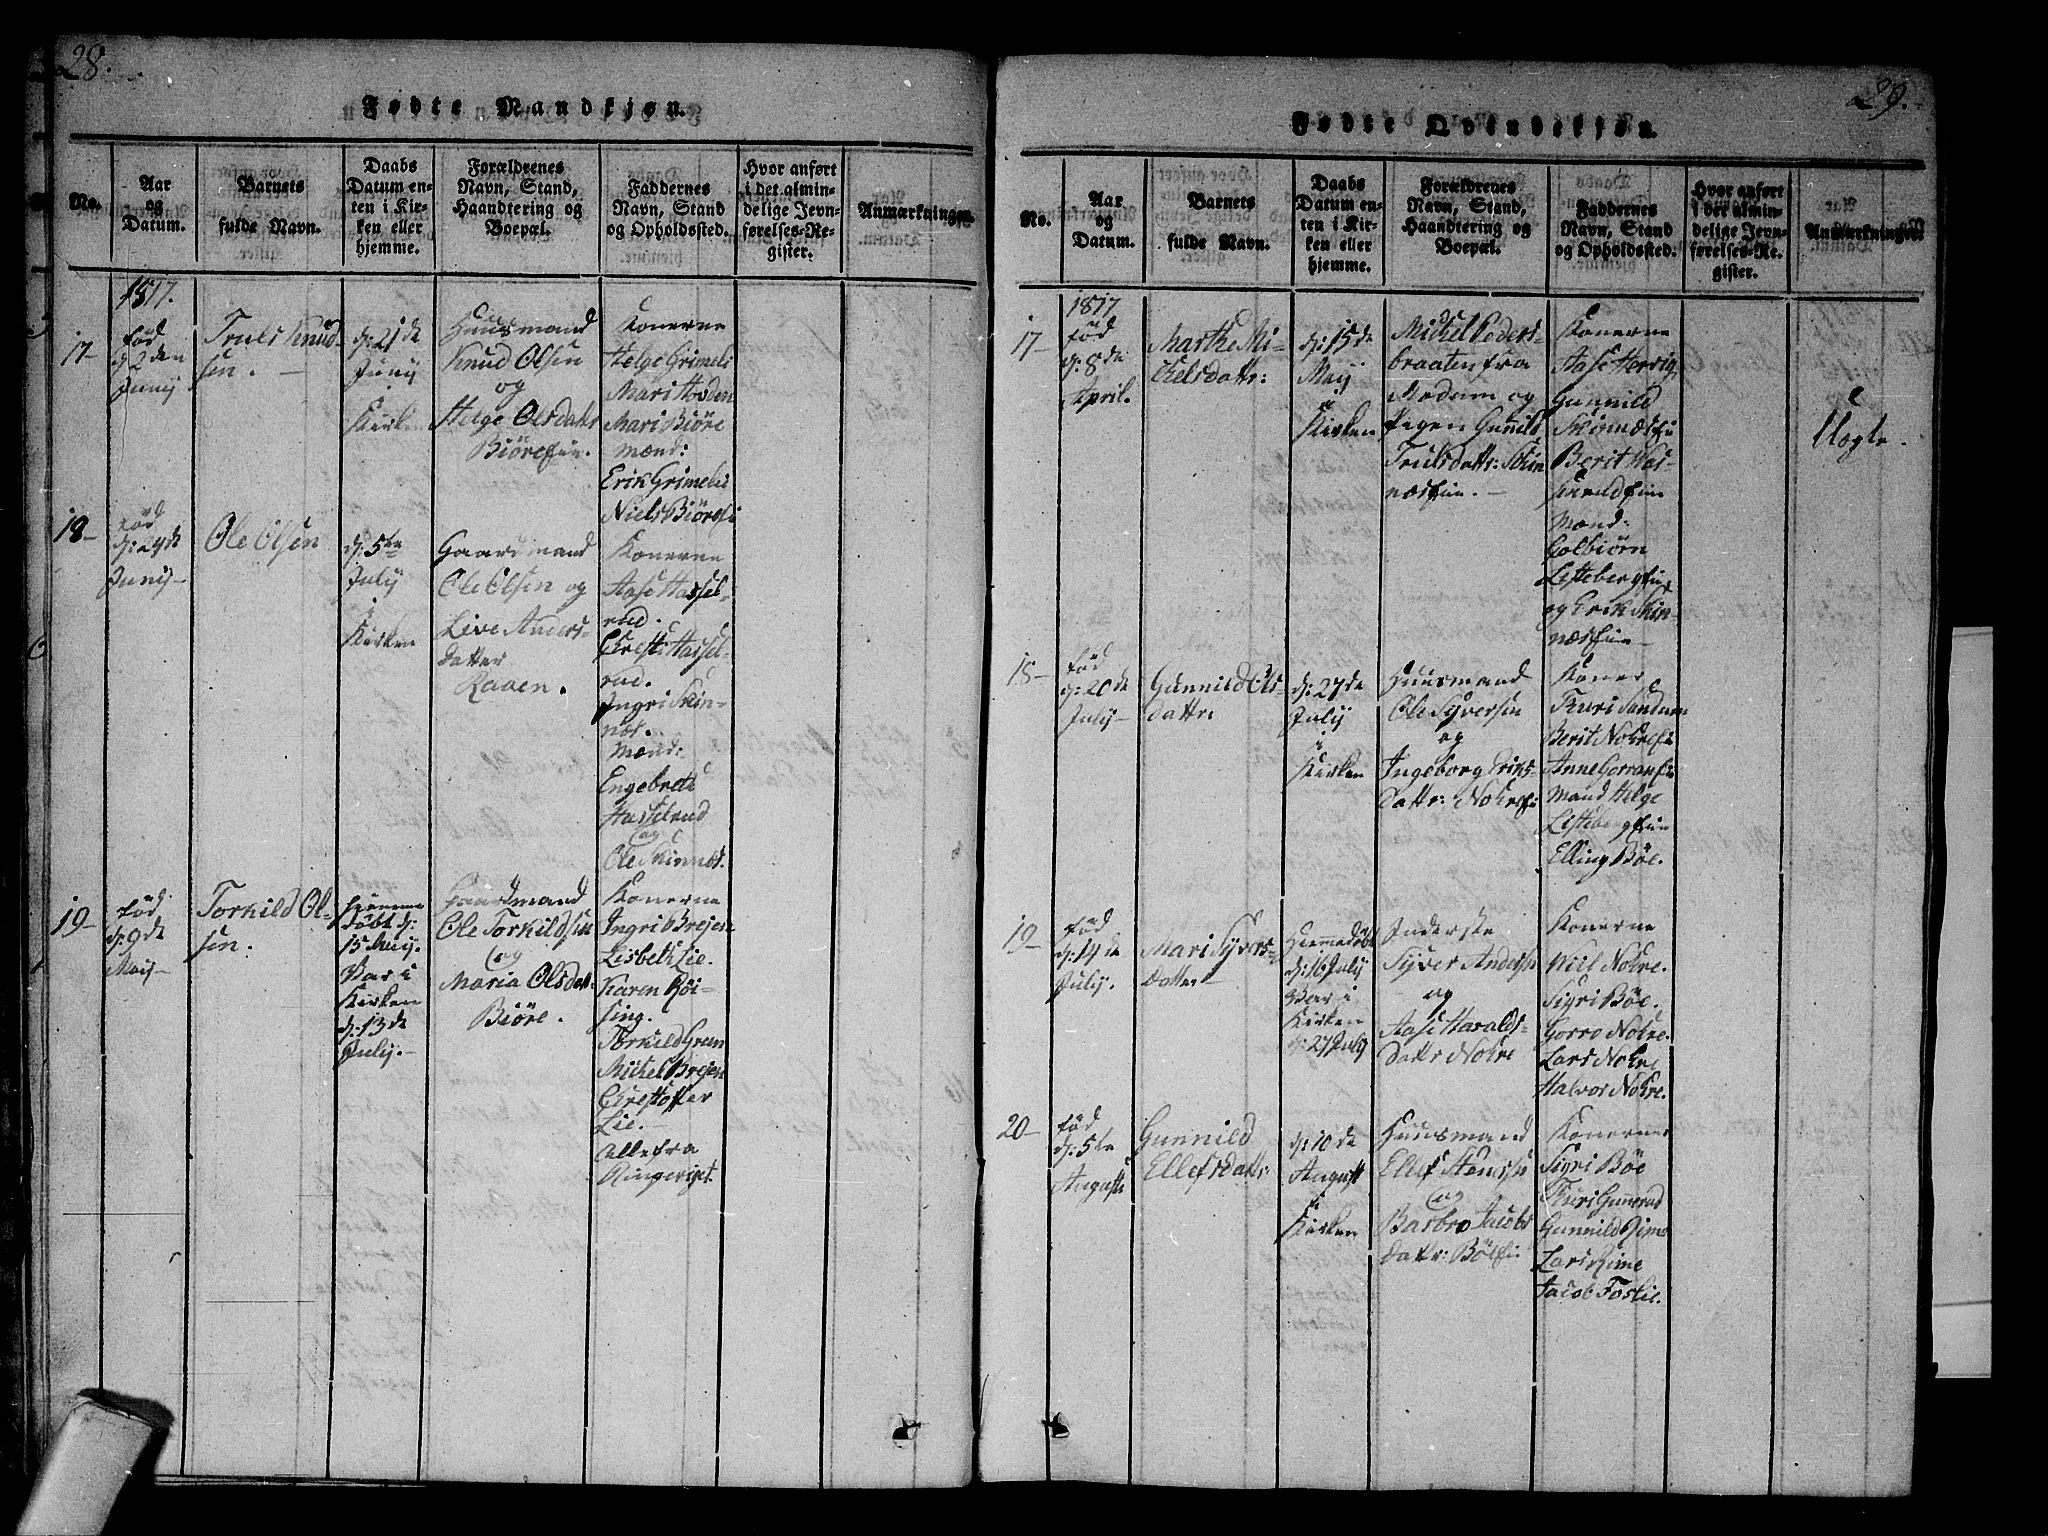 28.
Fødte Mandkjøn.
No.
Aar
og
Datum.
Barnets
fulde Navn.
Daabs
Datum en-
ten i Kir-
ken eller
hjemme.
Forældrenes
Navn, Stand,
Haandtering og
Boepæl.
Faddernes
Navn, Stand
og Opholdssted.
Hvor anført
i det almin-
delige Jevn-
førelses-Re-
gister.
Anmærkninger.
1817.
17-
fød
d: 2den
Junij
Truls Knud-
sen. -
d: 21de
Junij
i
Kirken
Huusmand
Knud Olsen
og
Helge Olsdatter
Biöre
Konerne
Helge Grimeli
Mari Hovden
Mari Biöre
Mænd:
Erik Grimeli
Niels Biöre
18-
fød
d: 24de
Junij-
Ole Olsen
d: 5te
July
i
Kirken
Gaardmand
Ole Olsen og
Live Anders-
datter
Raaen.
Konerne
Aase Hassel-
rud.
Kresti Hassel-
rud.
Ingri Skin-
næs.
Mænd:
Engebret
Hasselrud
og
Ole Skinnæs.
19-
fød
d: 9de
Maij-
Torkild Ol-
sen.
Hjemme
döbt d:
15 Maij.
Bar i
Kirken
d: 13de
July.-
Gaardmand
Ole Torkildsen
og
Maria Olsdatt:
Biöre.
Konerne
Ingri Brejen
Lisbeth Lie.
Karen Röi-
sing.
Torkild Gren
Michel Brejen
Christoffer
Lie.
Alle fra
Ringeriget.
29.
Fødte Qvindekjøn.
No.
Aar
og
Datum.
Barnets
fulde Navn.
Daabs
Datum en-
ten i Kir-
ken eller
hjemme.
Forældrenes
Navn, Stand,
Haandtering og
Boepæl.
Faddernes
Navn, Stand
og Opholdssted.
Hvor anført
i det almin-
delige Jevn-
førelses-Re-
gister.
Anmærkninger.
1817
17-
fød
d: 8de
April.
Marthe Mi-
chelsdattr:
d: 15de
Maij
i
Kirken
Michel Peders-
braaten fra
Modum og
Pigen Gunild
Trulsdattr: Skin
næs
Konerne
Aase Hervig
Gunnild
Skinnæs
Berit
Mænd:
Colbiörn
Listeberg
og Erik Skin-
næs
Uægte.
18-
fød
d: 20de
July-
Gunnild Ols-
dattr:
d: 27de
July
i
Kirken
Huusmand
Ole Syversen
og
Ingeborg Eriks-
dattr: Nokre
Koner
Thuri Sandum
Berit Nokre
Anne Gorran
Mænd Helge
Listeberg
Elling Böe.
19-
fød
d: 14de
July.
Mari Syvers-
datter
Hiemmedöbt
d: 16 July
Bar i
Kirken
d: 27 July
Inderste
Syver Andersen
og
Aase Haralds-
dattr Nokre
Konerne
Niel Nokre.
Sigri Böe.
Gorro Nokre.
Lars Nokre
Halvor Nokre.
20-
fød
d: 5te
Augusti
Gunnild
Ellefsdattr:
d: 10de
August
i
Kirken
Huusmand
Ellef
og
Barbro Jacobs
dattr: Böe
Konerne
Sigri Böe
Thuri Gunerud
Gunnild Rime
Lars Rime
Jacob Foslie.